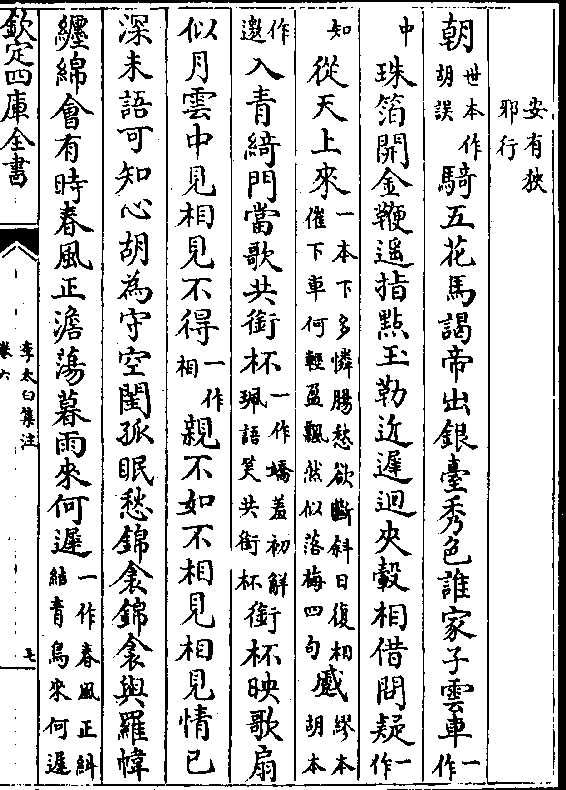 安有狹
邪行
朝世本作胡誤騎五花馬謁帝出銀臺秀色誰家子雲車一作
中珠箔開金鞭遥指點玉勒近遲迴夾轂相借問疑一作
知從天上來一本下多憐腸愁欲斷斜日復相催下車何輕盈飄然似落梅四句蹙繆本胡本
作邀入青綺門當歌共銜杯一作嬌羞初解珮語笑共銜杯銜杯映歌扇
似月雲中見相見不得一作相親不如不相見相見情已
深未語可知心胡為守空閨孤眠愁錦衾錦衾與羅幃
纏綿會有時春風正澹蕩暮雨來何遲一作春風正糾結青鳥來何遲
欽定四庫全書
李太白集注
卷六
七